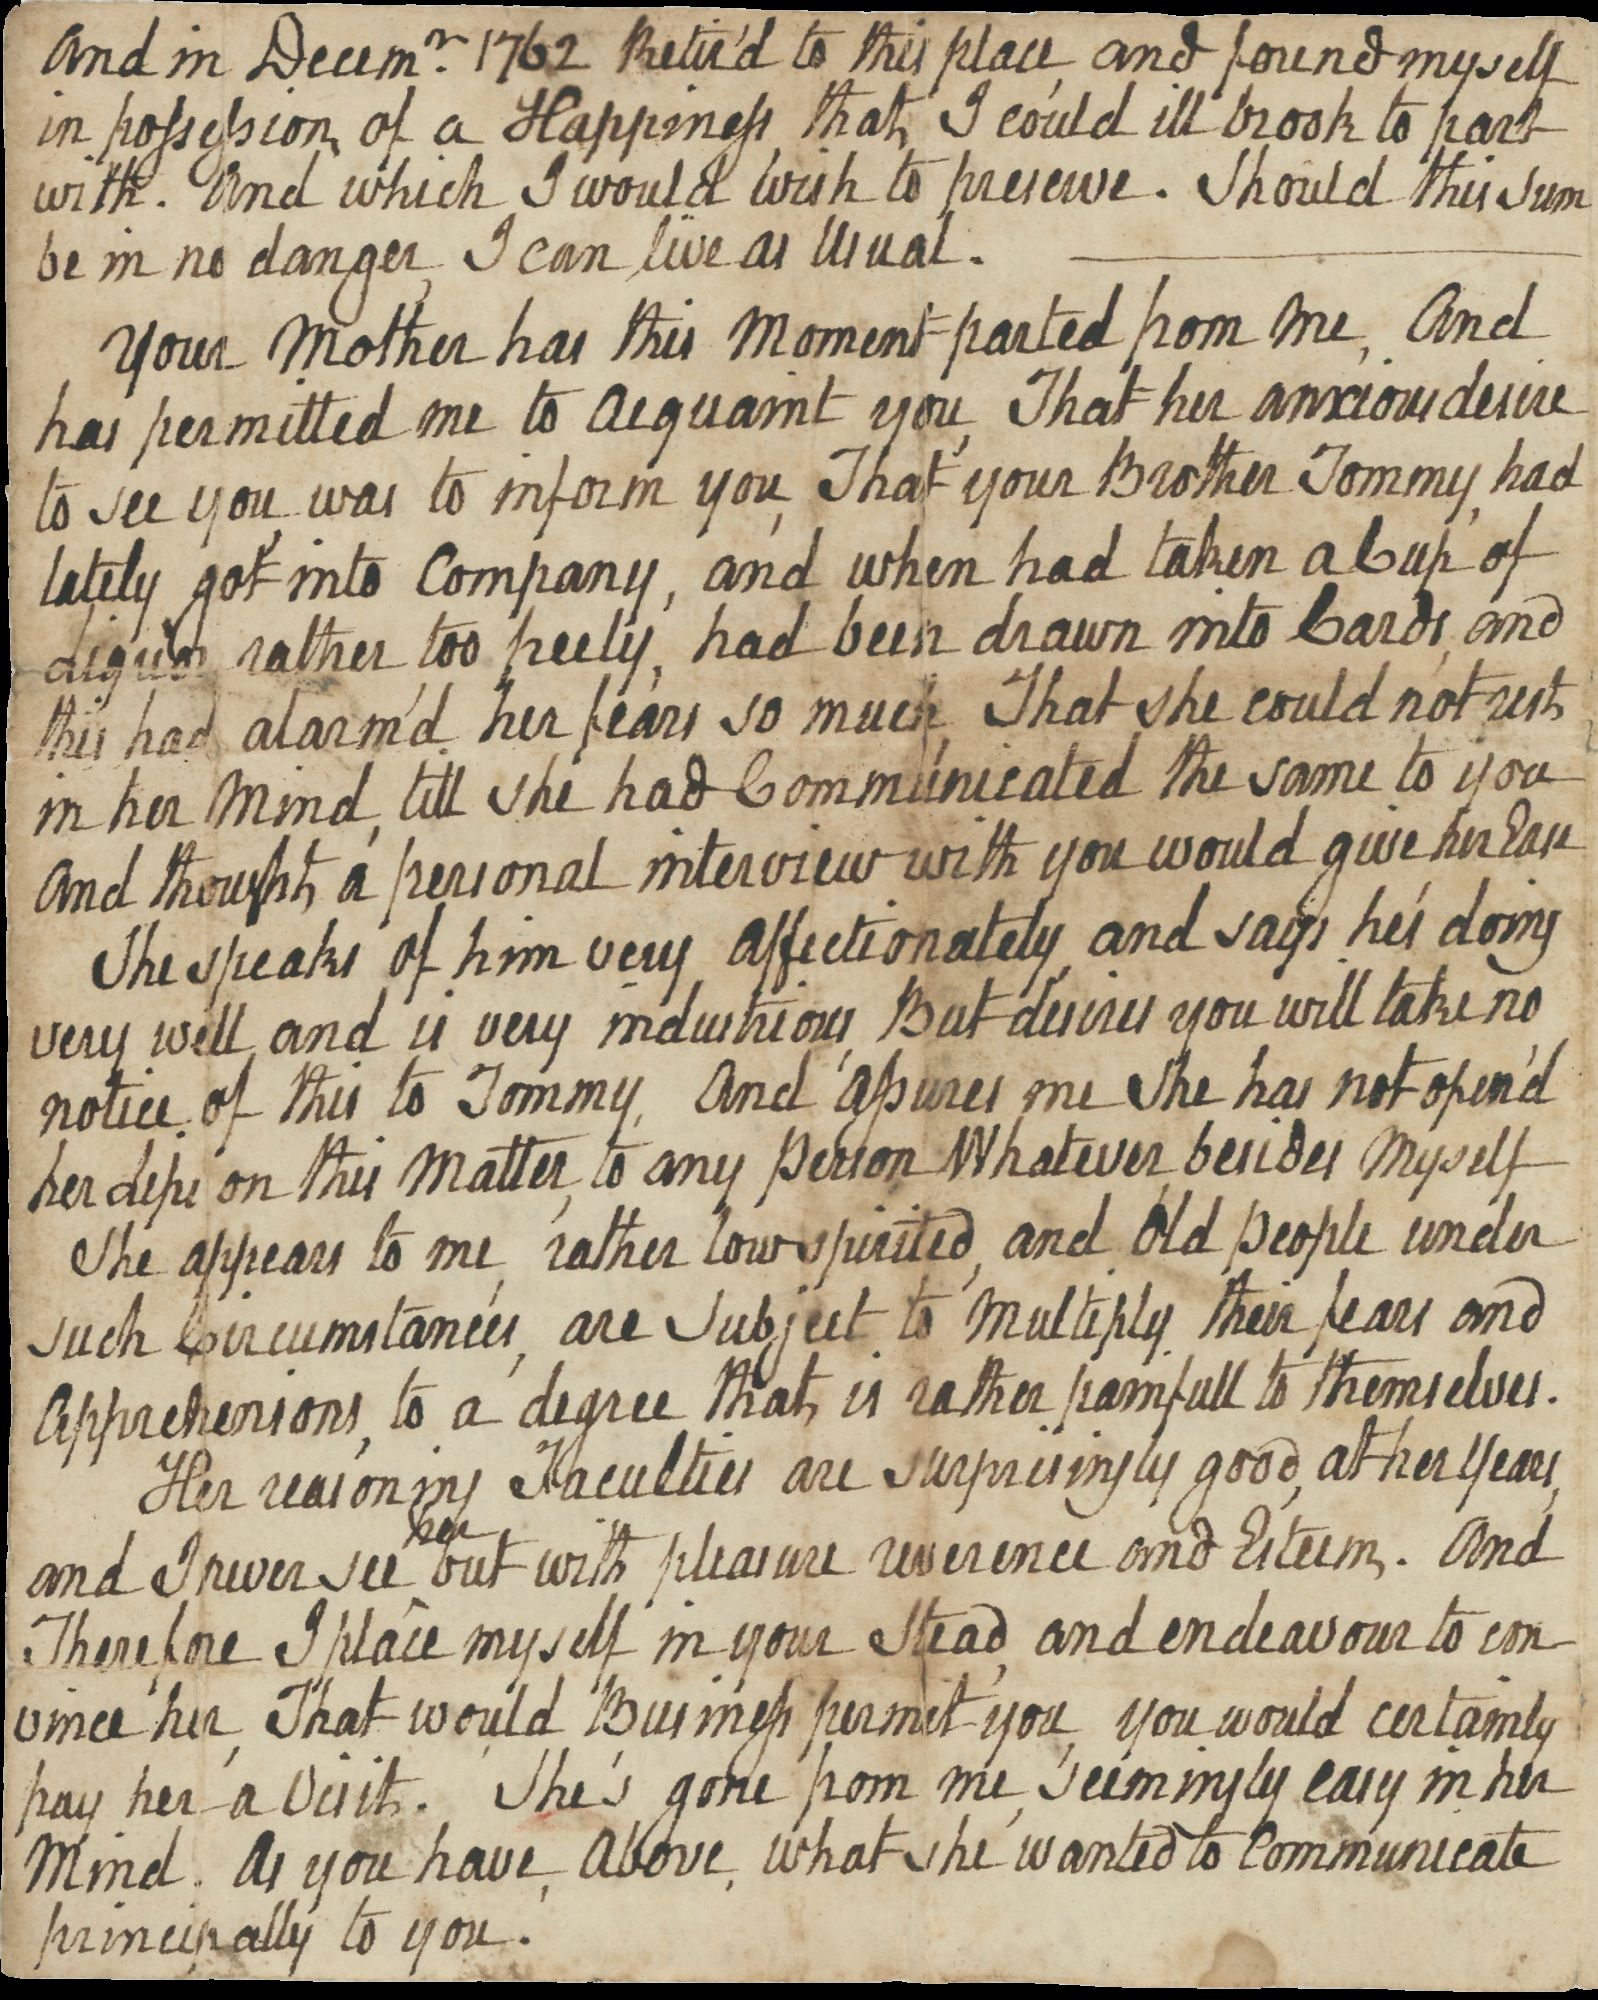 And in Decemr. 1762 Retir'd to this place, and found myself
in possession, of a Happiness, that, I could ill brook to part
with. And which I would wish to preserve. Should this Sum
be in no danger, I can live as Usual.
Your Mother has this Moment parted from Me, And
has permitted me to Acquaint you, That her anxious desire
to see you, was to inform you, That your Brother Tommy, had
lately got into Company, and when had taken a Cup of
Liquor rather too freely, had been drawn into Cards, and
this had alarm'd her fears so much, That she could not rest,
in her Mind, till she had Communicated the same to you
And thought, a personal interview with you would give her Ease
She speaks of him very Affectionately, and says he's doing
very well, and is very industrious, But desires you will take no
notice of this to Tommy, And Assures me She has not open'd
her lips on this Matter, to any Person Whatever, besides Myself
She appears to me, rather low spirited, and Old People under
such Circumstances, are Subject to Multiply their fears and
Apprehensions, to a degree that, is rather painfull to themselves.
Her reasoning Faculties are surprisingly good, at her Years,
and I never see her but with pleasure reverence and Esteem. And
Therefore I place myself in your Stead, and endeavour to con-
vince her, That would Business permit you, you would certainly
pay her a Visit. She's gone from me, seemingly easy in her
Mind. As you have, Above, what she wanted to Communicate
principally to you.